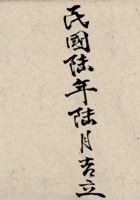 民國陸年陸月吉立